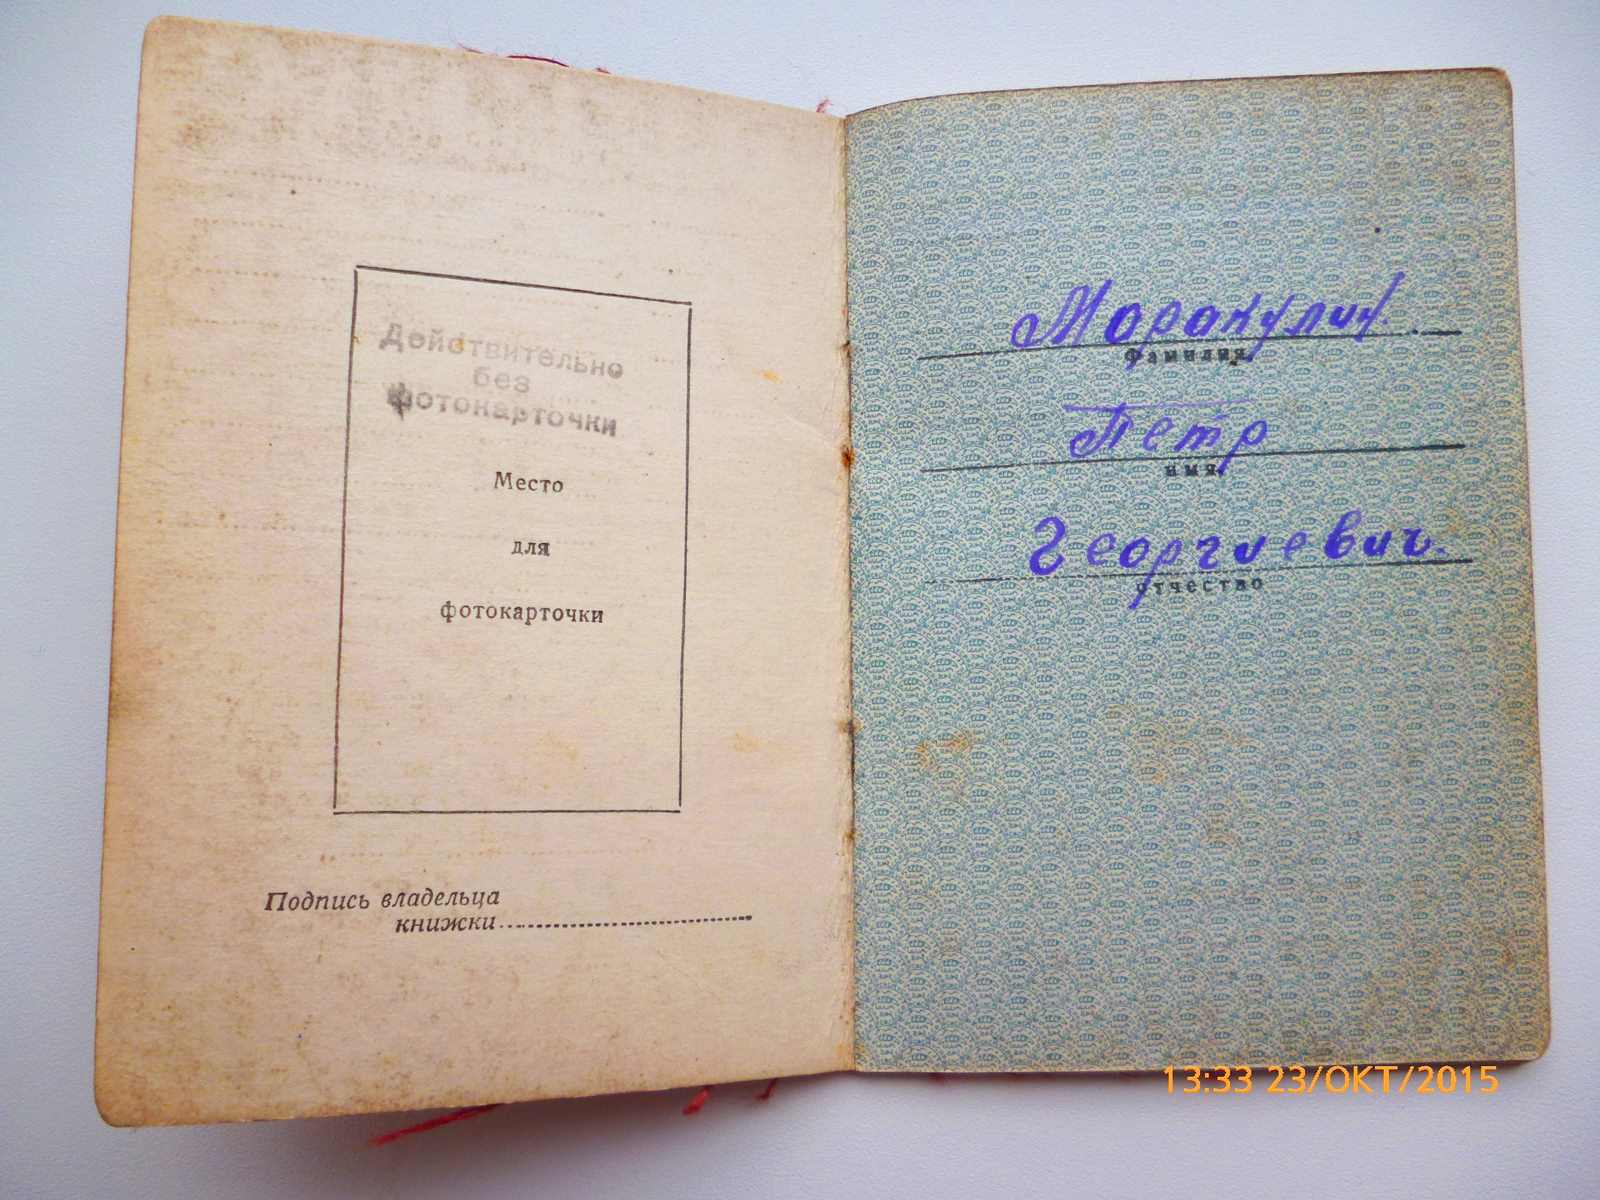 Действительно
без
фотокарточки
Место
для
фотокарточки
Подпись владельца
книжки
Моракулин.
Фамилия
Петр
имя
Георгиевич.
отчество
13:33 23/ОКТ/2015